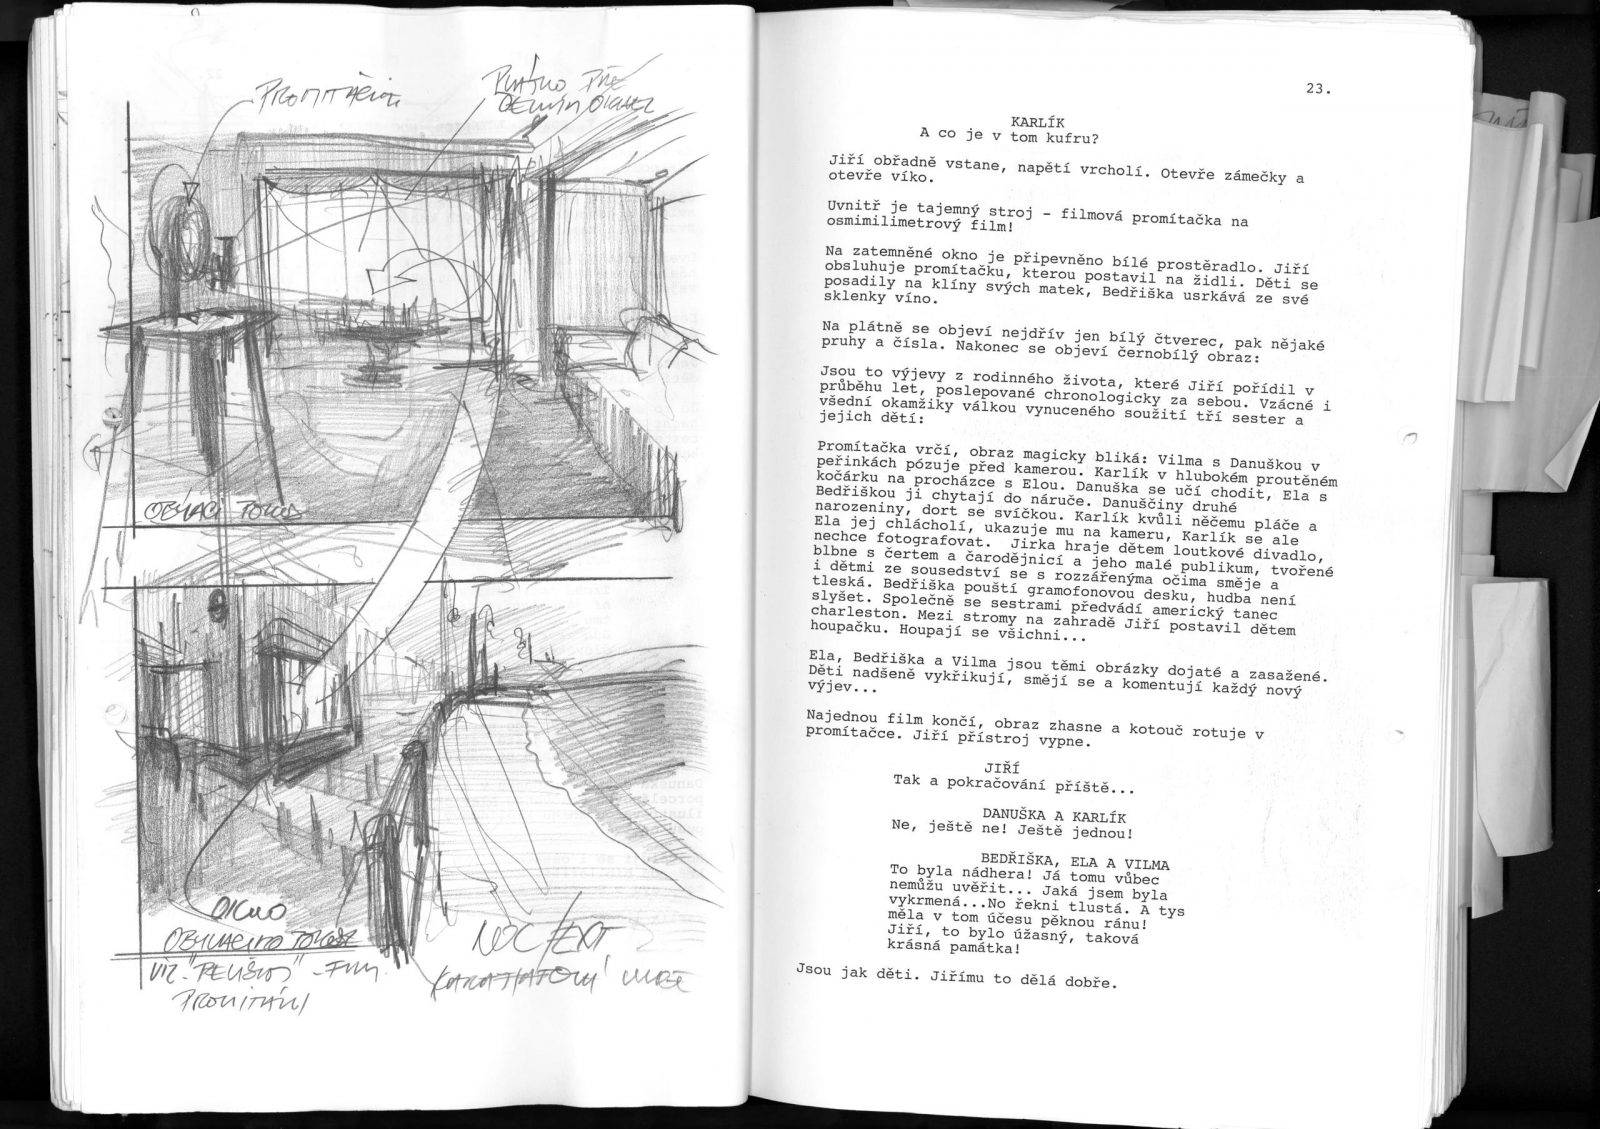 PLÁTNO PŘE
OBÝVACÍ POKOJ
OKNO
- FILM
NOC/EXT
23.
KARLÍK
A co je v tom kufru?
Jiří obřadně vstane, napětí vrcholí. Otevře zámečky a
otevře víko.
Uvnitř je tajemný stroj - filmová promítačka na
osmimilimetrový film!
Na zatemněné okno je připevněno bílé prostěradlo. Jiří
obsluhuje promítačku, kterou postavil na židli. Děti se
posadily na klíny svých matek, Bedřiška usrkává ze své
sklenky víno.
Na plátně se objeví nejdřív jen bílý čtverec, pak nějaké
pruhy a čísla. Nakonec se objeví černobílý obraz:
Jsou to výjevy z rodinného života, které Jiří pořídil v
průběhu let, poslepované chronologicky za sebou. Vzácné i
všední okamžiky válkou vynuceného soužití tří sester a
jejich dětí:
Promítačka vrčí, obraz magicky bliká: Vilma s Danuškou v
peřinkách pózuje před kamerou. Karlík v hlubokém proutěném
kočárku na procházce s Elou. Danuška se učí chodit, Ela s
Bedřiškou ji chytají do náruče. Danuščiny druhé
narozeniny, dort se svíčkou. Karlík kvůli něčemu pláče a
Ela jej chlácholí, ukazuje mu na kameru, Karlík se ale
nechce fotografovat. Jirka hraje dětem loutkové divadlo,
blbne s čertem a čarodějnicí a jeho malé publikum, tvořené
i dětmi ze sousedství se s rozzářenýma očima směje a
tleská. Bedřiška pouští gramofonovou desku, hudba není
slyšet. Společně se sestrami předvádí americký tanec
charleston. Mezi stromy na zahradě Jiří postavil dětem
houpačku. Houpají se všichni...
Ela, Bedřiška a Vilma jsou těmi obrázky dojaté a zasažené.
Děti nadšeně vykřikují, smějí se a komentují každý nový
výjev...
Najednou film končí, obraz zhasne a kotouč rotuje v
promítačce. Jiří přístroj vypne.
JIŘÍ
Tak a pokračování příště...
DANUŠKA A KARLÍK
Ne, ještě ne! Ještě jednou!
BEDŘIŠKA, ELA A VILMA
To byla nádhera! Já tomu vůbec
nemůžu uvěřit... Jaká jsem byla
vykrmená...No řekni tlustá. A tys
měla v tom účesu pěknou ránu!
Jiří, to bylo úžasný, taková
krásná památka!
Jsou jak děti. Jiřímu to dělá dobře.